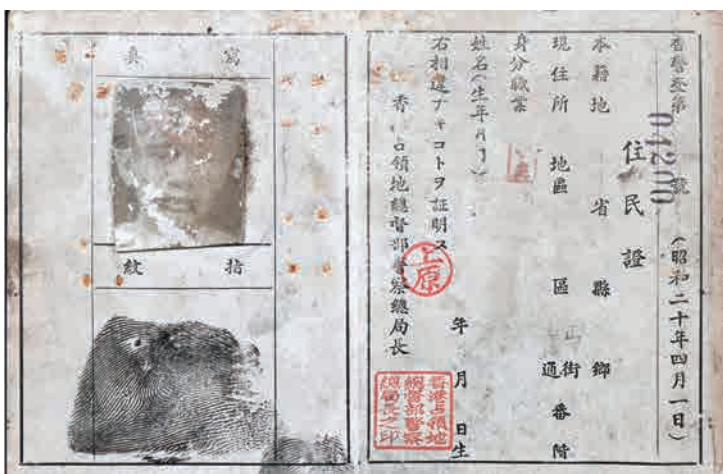 香警證第　號
04200
住民證
(昭和二十年四月一日)
本籍地　省　縣　鄉
現住所　地區　區　街通　番　階
身分職業
姓名(生年月日)　年　月　日生
右相違ナキコトヲ証明ス
香　占領地總督部警察總局長
上原
香港占領地
總督部警察
總局長之印
寫真
指紋